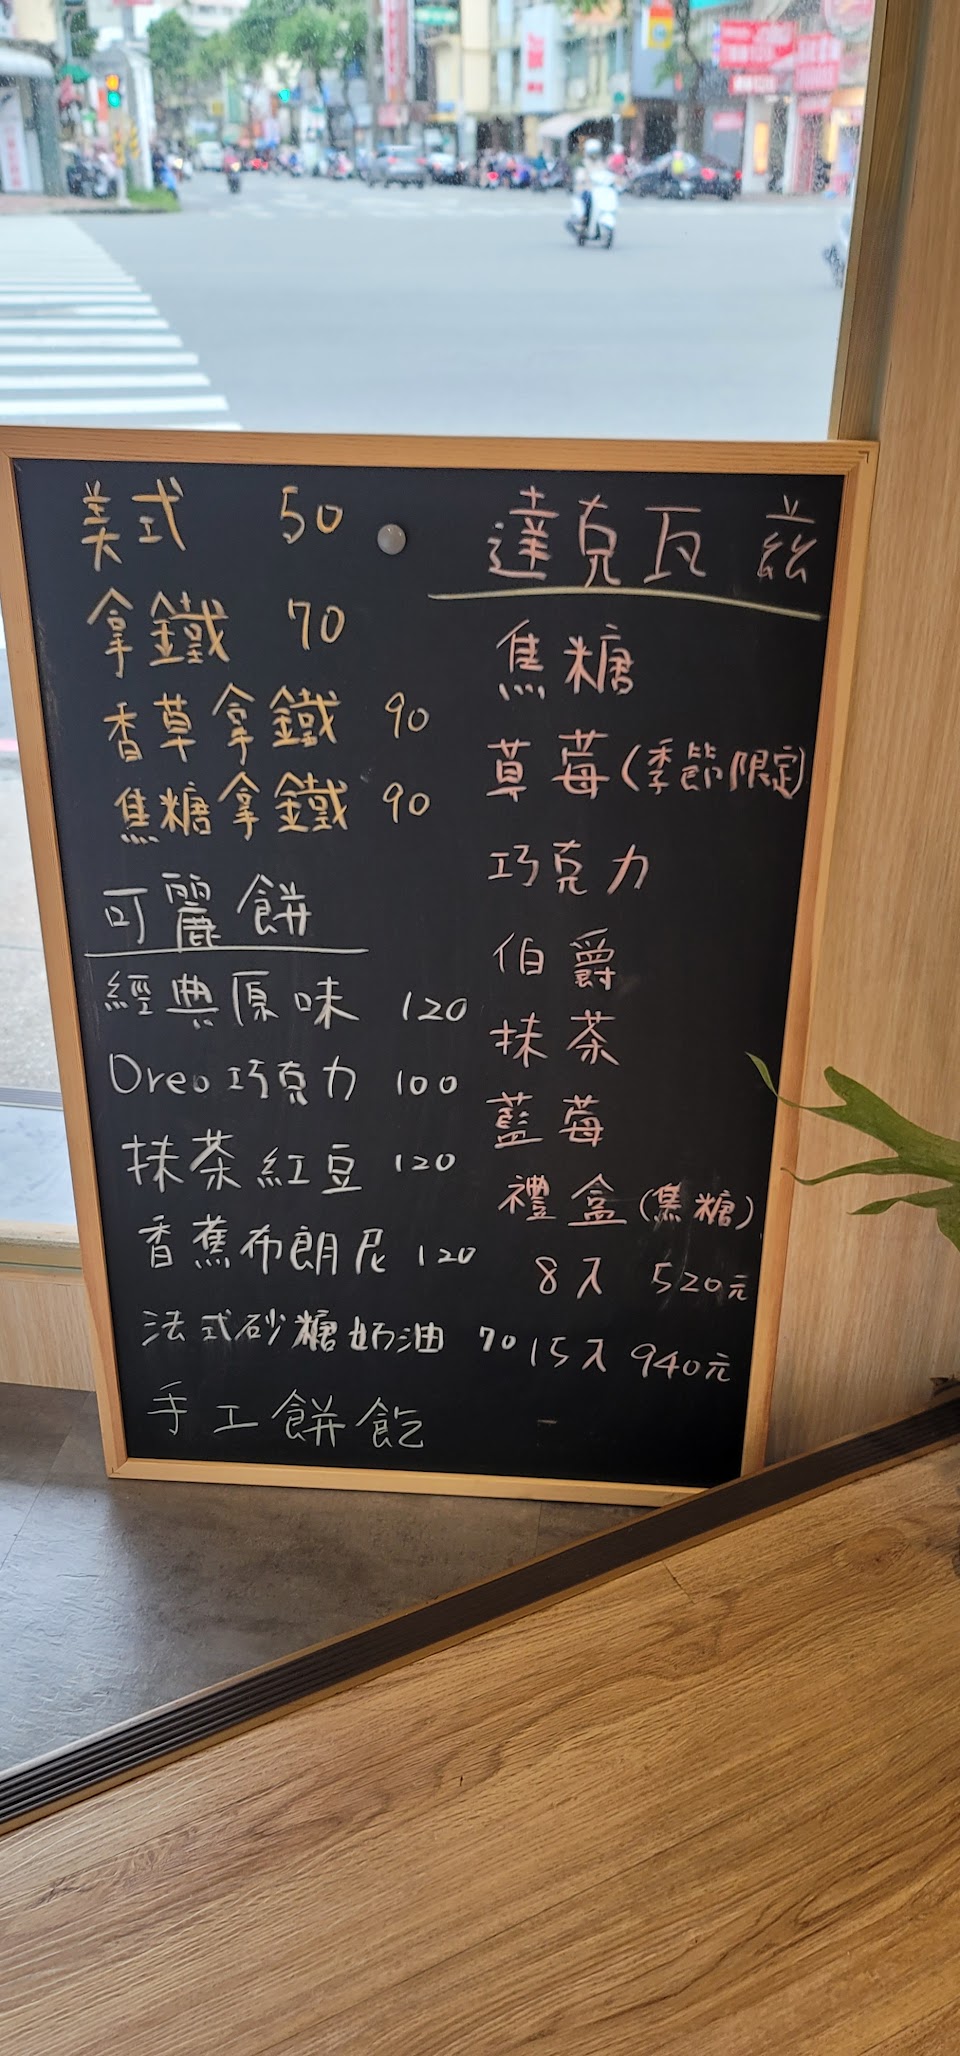 美式 50
拿鐵 70
香草拿鐵 90
焦糖拿鐵 90
可麗餅
經典原味 120
Oreo巧克力 100
抹茶紅豆 120
香蕉布朗尼 120
法式砂糖奶油 70
手工餅飪
達克瓦茲
焦糖
草莓(季節限定)
巧克力
伯爵
抹茶
藍莓
禮盒(焦糖)
8入 520元
15入 940元